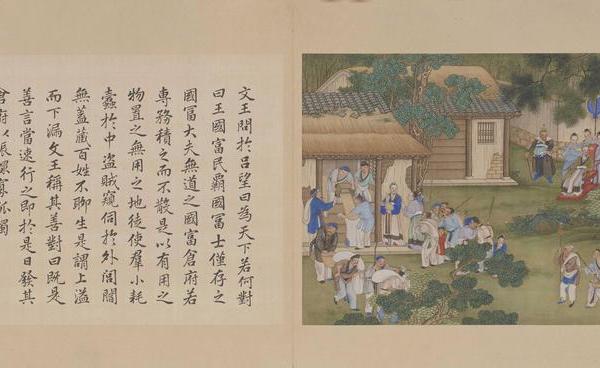 文王問於呂望曰為天下若何對
曰王國富民霸國富士僅存之
國富大夫無道之國富倉府若
專務積之而不散是以有用之
物置之無用之地徒使羣小耗
蠹於中盜賊窺伺於外閭閻
無蓋藏百姓不聊生是謂上溢
而下漏文王稱其善對曰既是
善言當速行之即於是日發其
倉府以振鰥寡孤獨